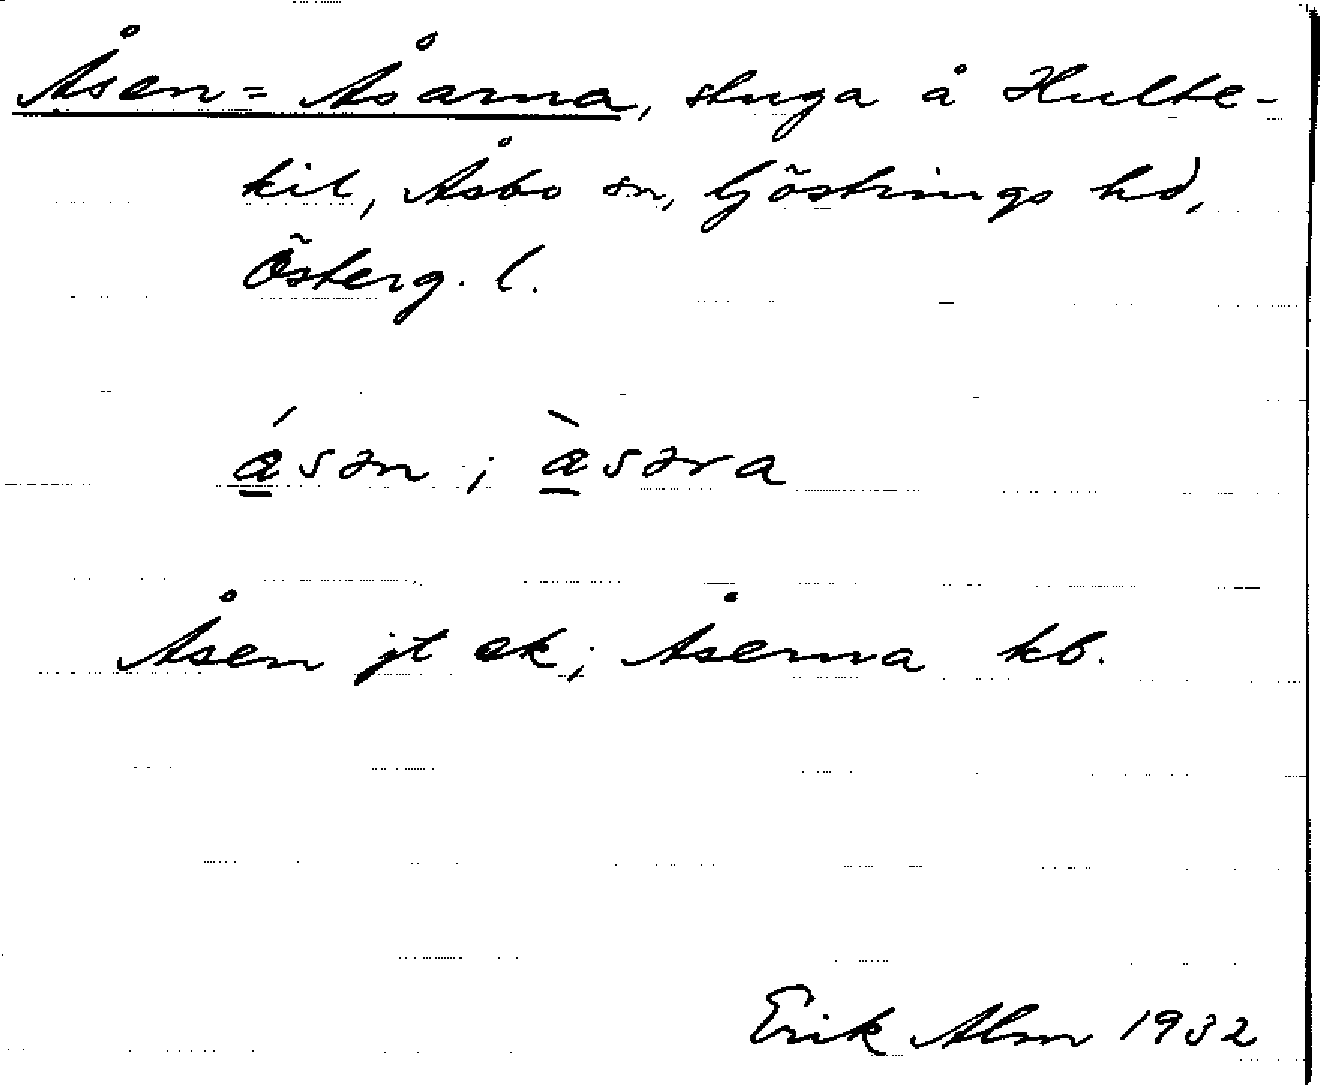 Åsen = Åsarna, stuga å Hulte-
kil, Åsbo sn, Göstrings hd,
Österg. l.
á̲sən ; à̲səra
Åsen jt ek; Åserna kb.
Erik Alm 1932